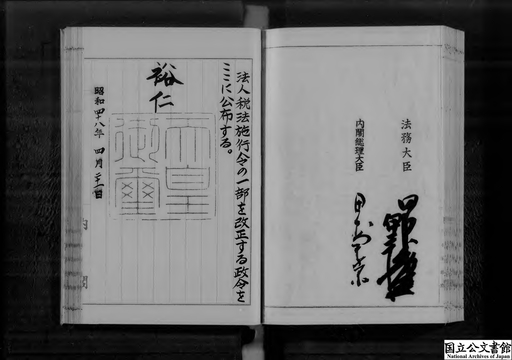 法務大臣
内閣総理大臣
田中角榮
法人税法施行令の一部を改正する政令を
ここに公布する。
裕仁
天皇
御璽
昭和四十八年 四月二十一日
内閣
国立公文書館
National Archives of Japan